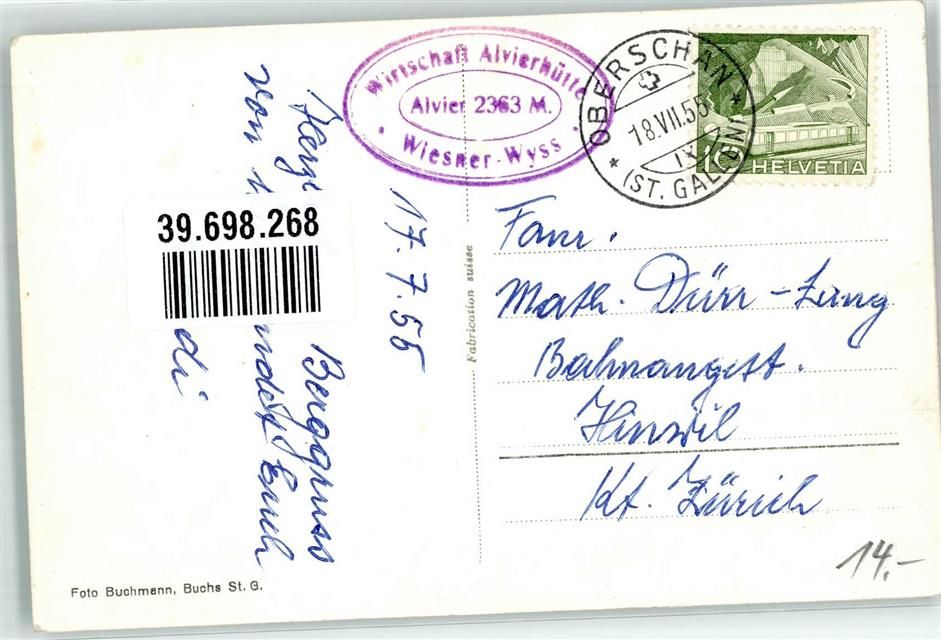 Wirtschaft Alvierhütte
Alvier 2363 M.
Wiesner-Wyss
OBERSCHAN
18.VII.55
IX
(ST. GALLEN)
10 HELVETIA
17.7.55
Berggruss
von
Euch
39.698.268
Fabrication suisse
Fam.
Math. Dürr-Zang
Bahnangest.
Hinwil
Kt. Zürich
14.-
Foto Buchmann, Buchs St. G.